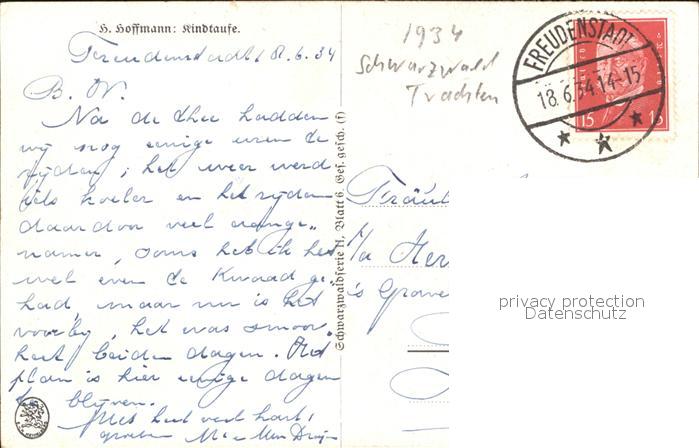 H. Hoffmann: Kindtaufe.
Freudenstadt 18.6.34
B. W.
Na de thee hadden
wij nog eenige uren te
rijden; het weer werd
iets koeler en het rijden
daardoor veel aange-
namer, soms heb ik het
wel even te kwaad ge-
had, maar nu is het
voorbij, het was smoor-
heet beiden dagen. Het
plan is hier eenige dagen
te blijven.
Met heel veel hart.
groeten
Schwarzwaldserie II, Blatt 6. Ges. gesch. (f)
1934
Schwarzwald
Trachten
FREUDENSTADT
18.6.34.14-15
15 15
Fräul
p/a Her
's Grave
privacy protection
Datenschutz